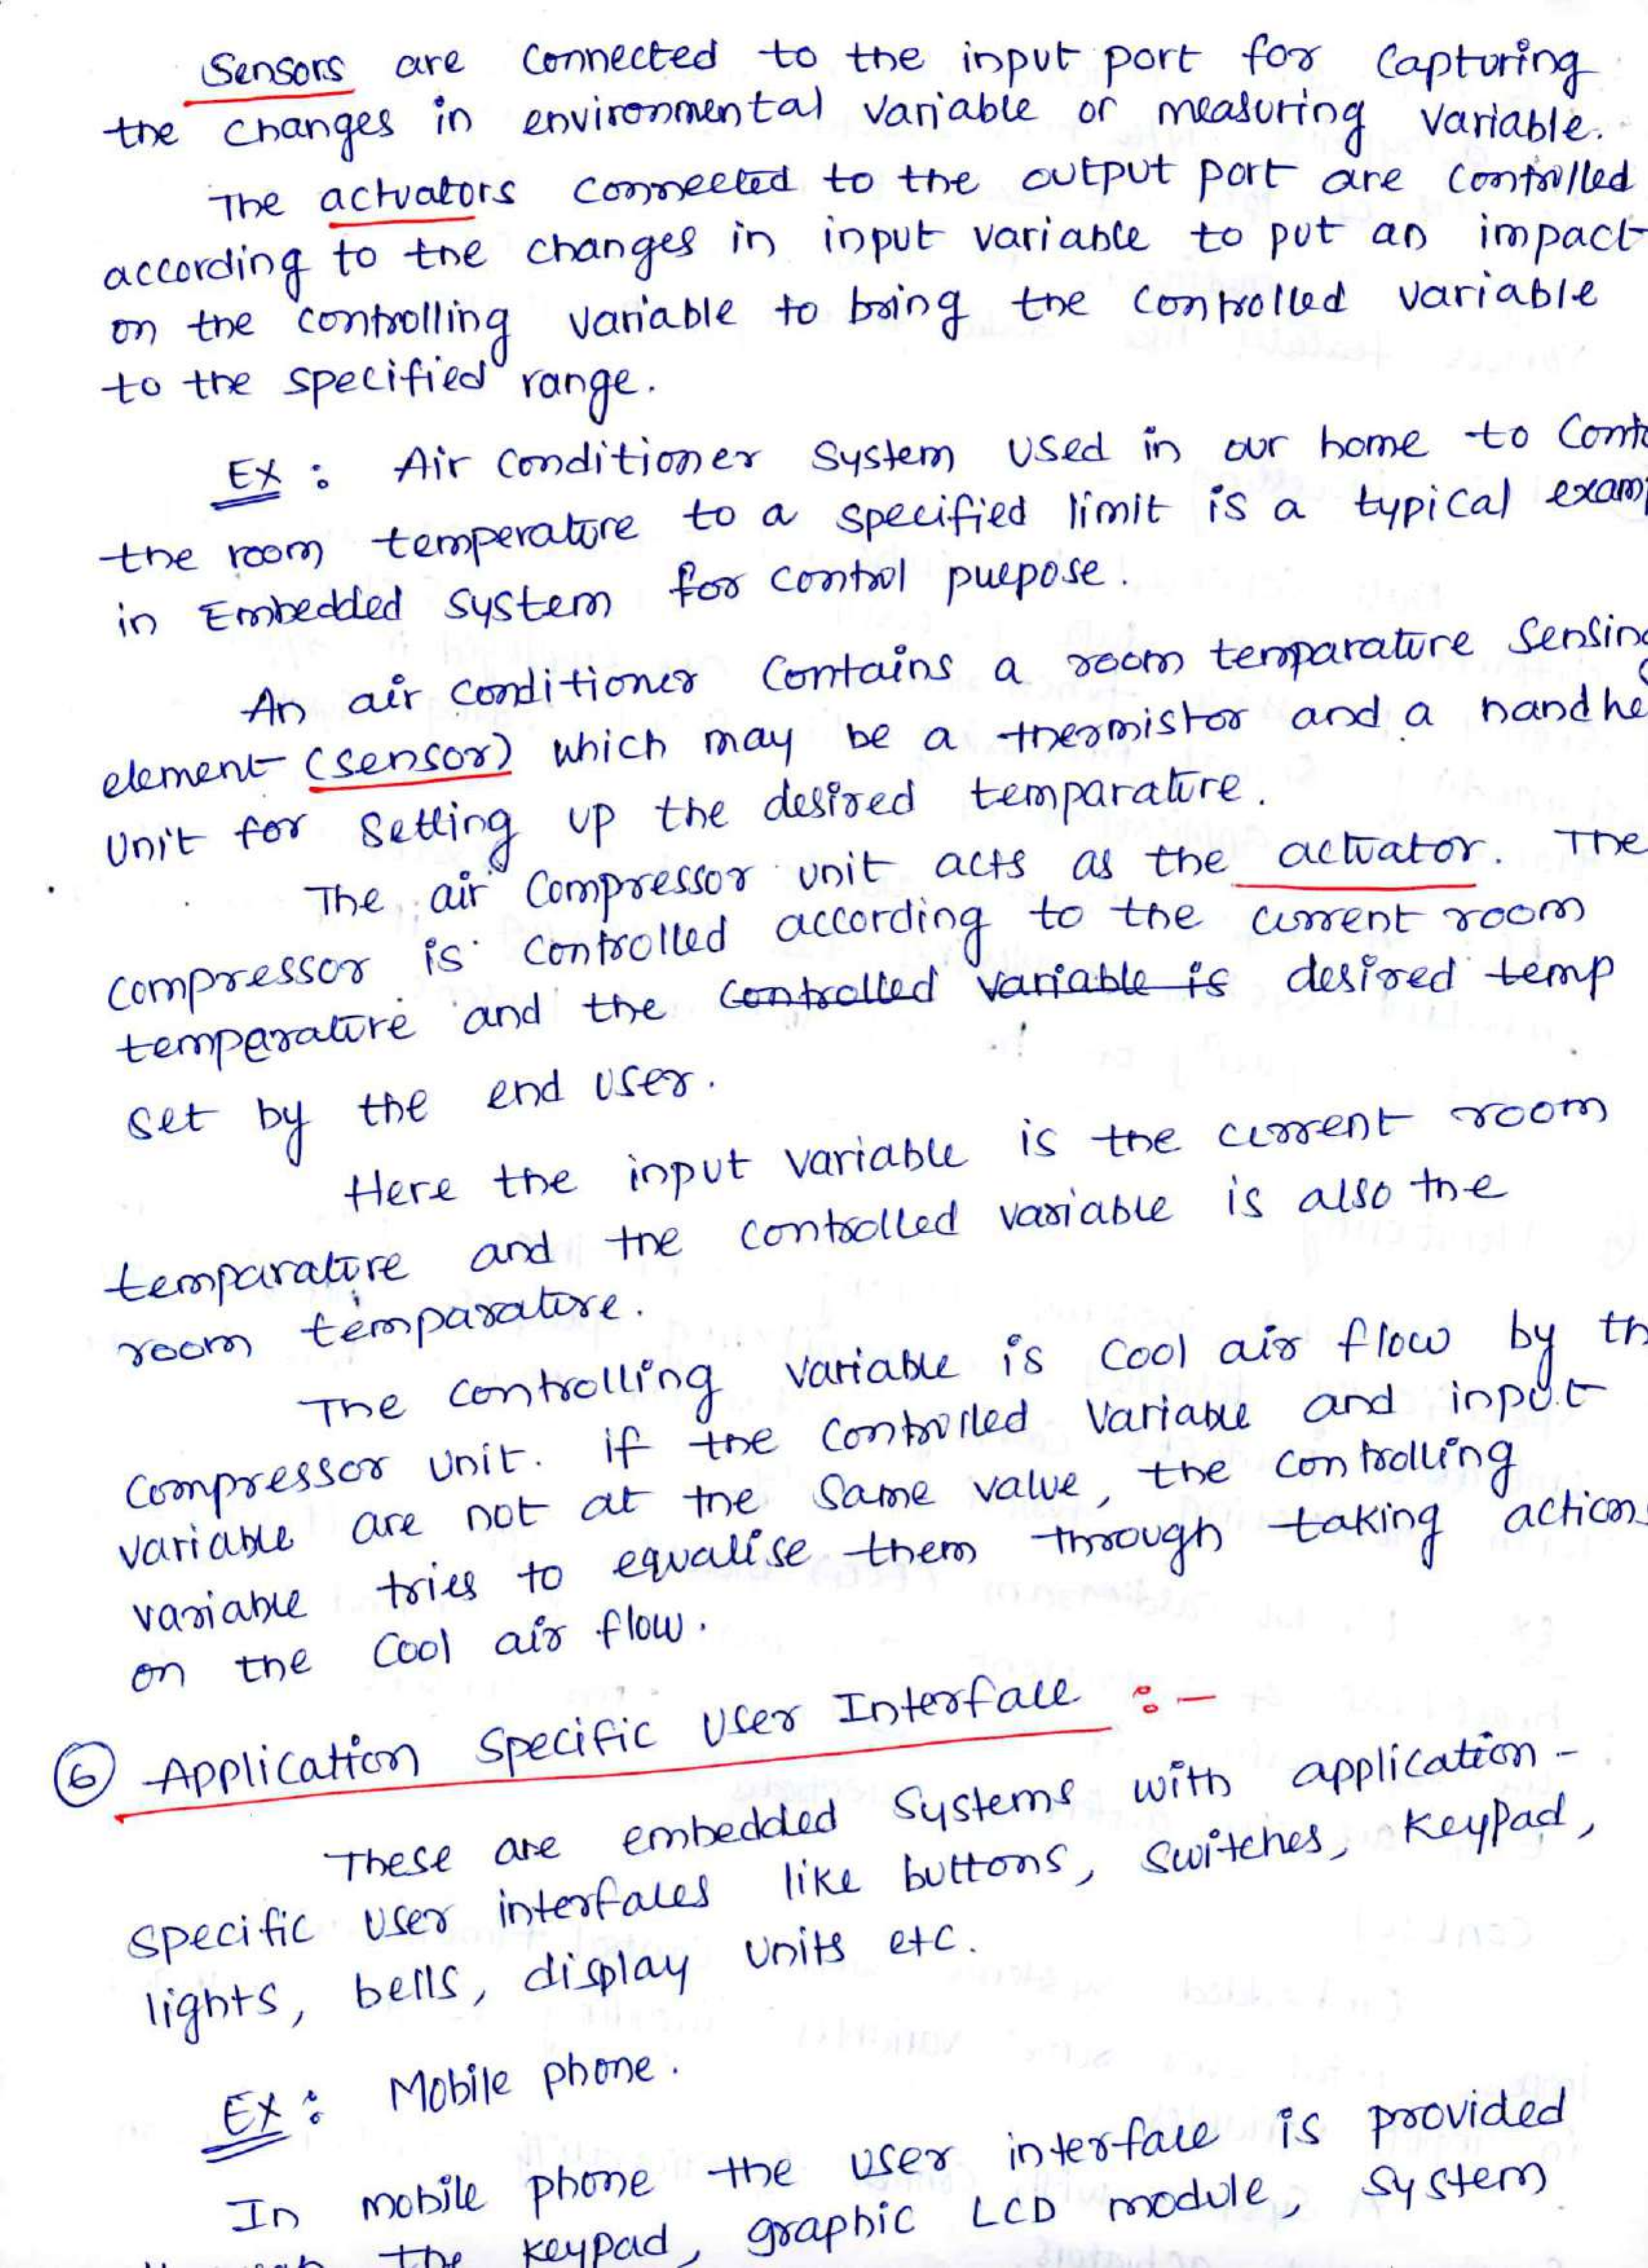 Sensors are connected to the input port for capturing
the changes in environmental variable or measuring variable.
The actuators connected to the output port are controlled
according to the changes in input variable to put an impact
on the controlling variable to bring the controlled variable
to the specified range.
Ex : Air conditioner system used in our home to Cont
the room temperature to a specified limit is a typical exam
in Embedded system for control purpose.
An air conditioner contains a room temparature sensing
element (sensor) which may be a thermistor and a handhe
unit for setting up the desired temparature.
The air compressor unit acts as the actuator. The
compressor is controlled according to the current room
temperature and the controlled variable is desired temp
set by the end user.
Here the input variable is the current room
temparature and the controlled variable is also the
room temparature.
The controlling variable is cool air flow by th
compressor unit. if the controlled variable and input
variable are not at the same value, the controlling
variable tries to equalise them through taking actions
on the cool air flow.
⑥ Application Specific User Interface :-
These are embedded systems with application-
specific user interfaces like buttons, switches, keypad,
lights, bells, display units etc.
Ex : Mobile phone.
In mobile phone the user interface is provided
the keypad, graphic LCD module, system